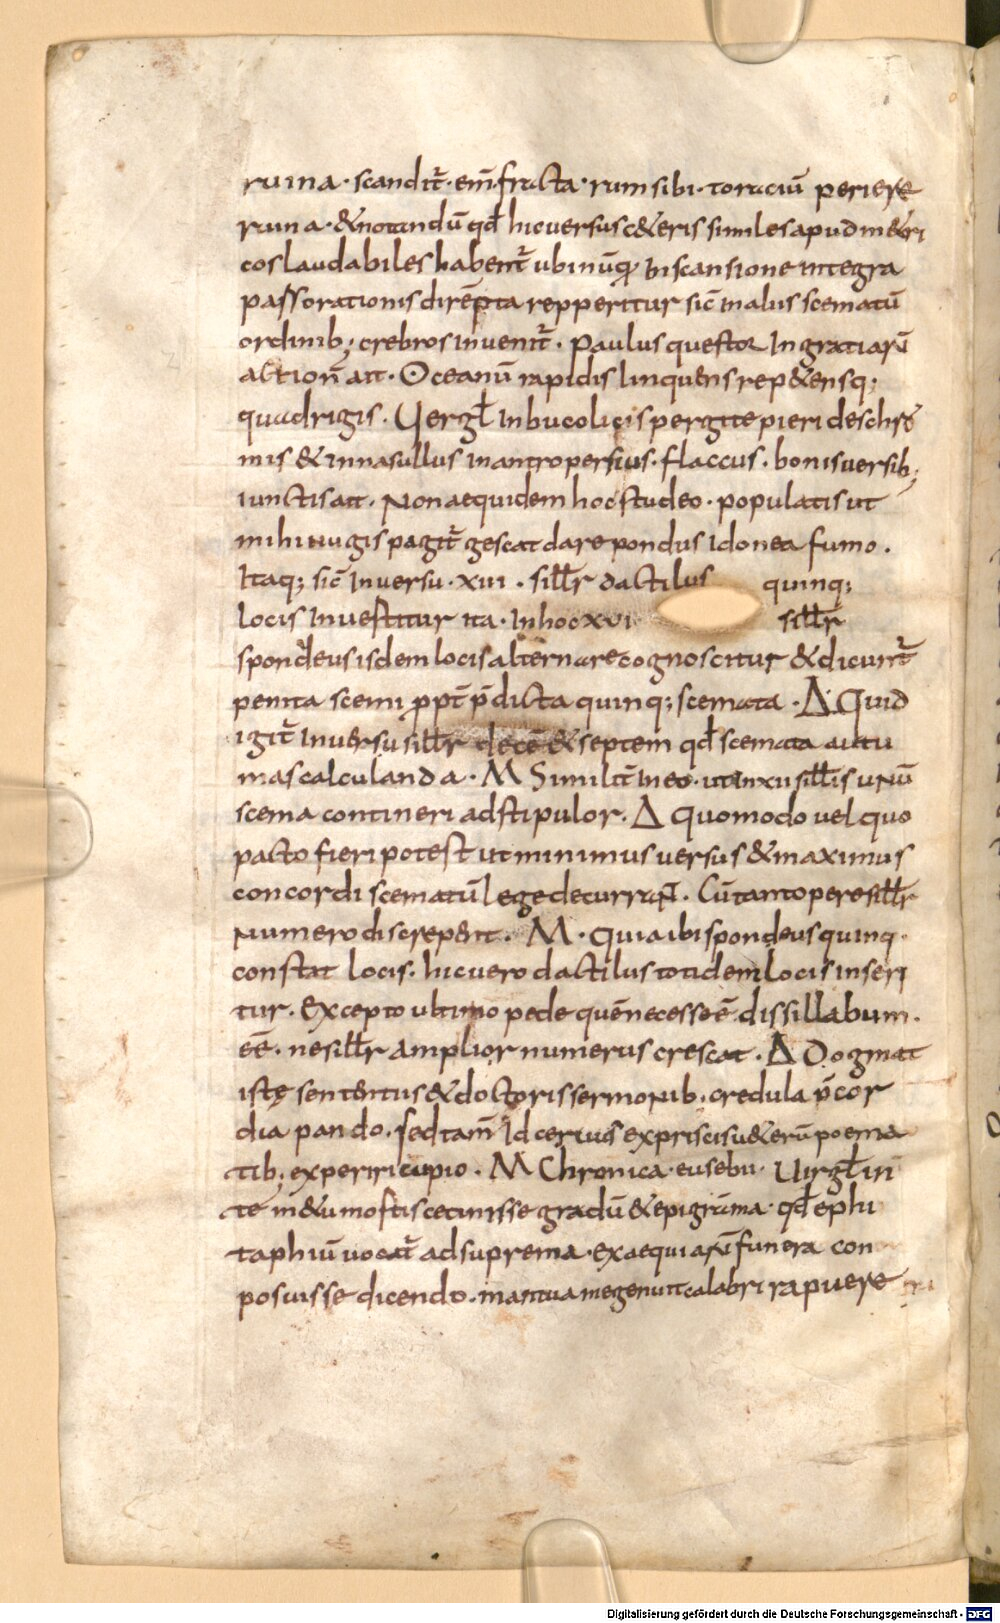 ruina · scandit̄ · em̄ · fracta · rum sibi · toraciū periere
runa · &notandū qđ hicuersus c&eris similes apud m&ri
cos laudabiles habent̄ ubi nūq; in scansione integra
pars orationis dirēpta repperitur sic̄ in alus scematū
ordinib; crebros inuenit̄ · Paulus questor In gratiarū
action̄ ait · Oceanū rapidis linquens rep&ensq;
quadrigis · Uergł In bucolicis pergite pierides chro
mis & in nasullus in antro persius · flaccus · bonis uersib;
iunctis ait · Non aequidem hoc studeo · populatis ut
mihi nugis pagit̄ gescat dare pondus Idonea fumo .
Itaq; sic̄ In uersu · xvii · sillr dactilus quinq;
locis Inuestitur ita · In hoc xvi sillr
spondeus isdem locis alternare cognoscitur & dicunt̄
penita scemi ꝓpt̄ p̄dicta quinq; scemata · Δ Quid
igit̄ In uersu sillr decē & septem qđ scemata autu
mas calculanda · M Similit̄ In eo · ut in xii sillis unū
scema contineri adstipulor . Δ Quomodo uel quo
pacto fieri potest ut minimus uersus & maximus
concordi scematū lege decurrant̄ . Cū tantopere sillr
Numero discrepent . M · Quia ibi spondeus quinq ·
constat locis · hic uero dactilus totidem locis inseri
tur . Excepto ultimo pede quē necesse ē dissillabum .
eē · ne sillr amplior numerus crescat . Δ Dogmat
istę sententiis & doctoris sermonib · credula p̄cor
dia pando . sed tam̄ Id certius ex priscis u&erū poema
tib; experiri cupio . M Chronica · eusebii · Uirgł in
te in&umoftis cecinisse gradū & epigrāma · qđ ephi
taphiū uocat̄ ad suprema · exaequiarū funera con
posuisse dicendo . mantua me genuit calabri rapuere
Digitalisierung gefördert durch die Deutsche Forschungsgemeinschaft - DFG